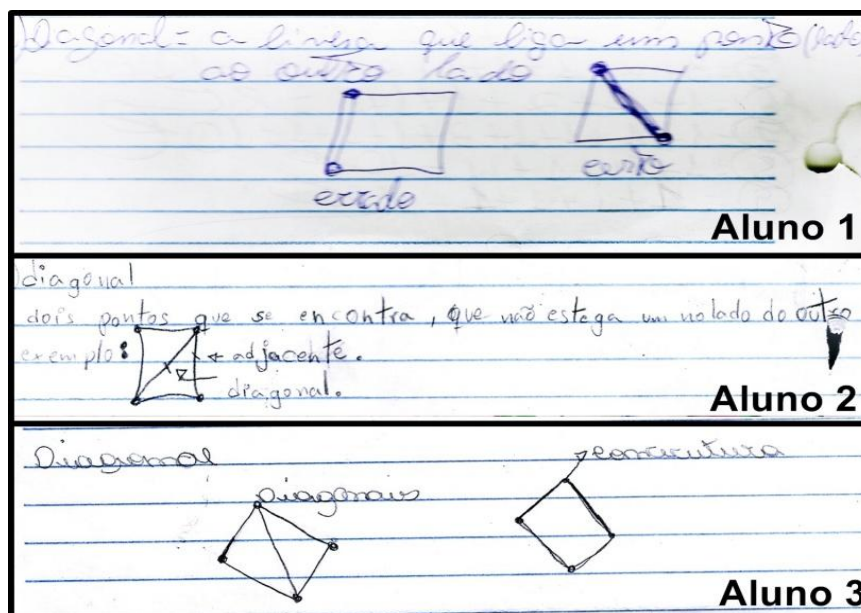 Diagonal = a linha que liga um ponto (lado)
ao outro lado
errado
certo
Aluno 1
diagonal
dois pontos que se encontra, que não estega um no lado do outro
exemplo:
adjacente.
diagonal.
Aluno 2
Diagonal
Diagonais
Aluno 3